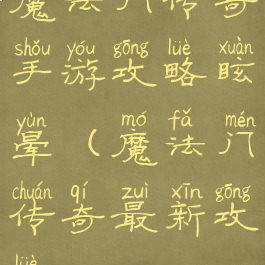 魔法门传奇
shǒu yóu gōng lüè xuàn
手游攻略眩
yùn mó fǎ mén
晕（魔法门
chuán qí zuì xīn gōng
传奇最新攻
lüè